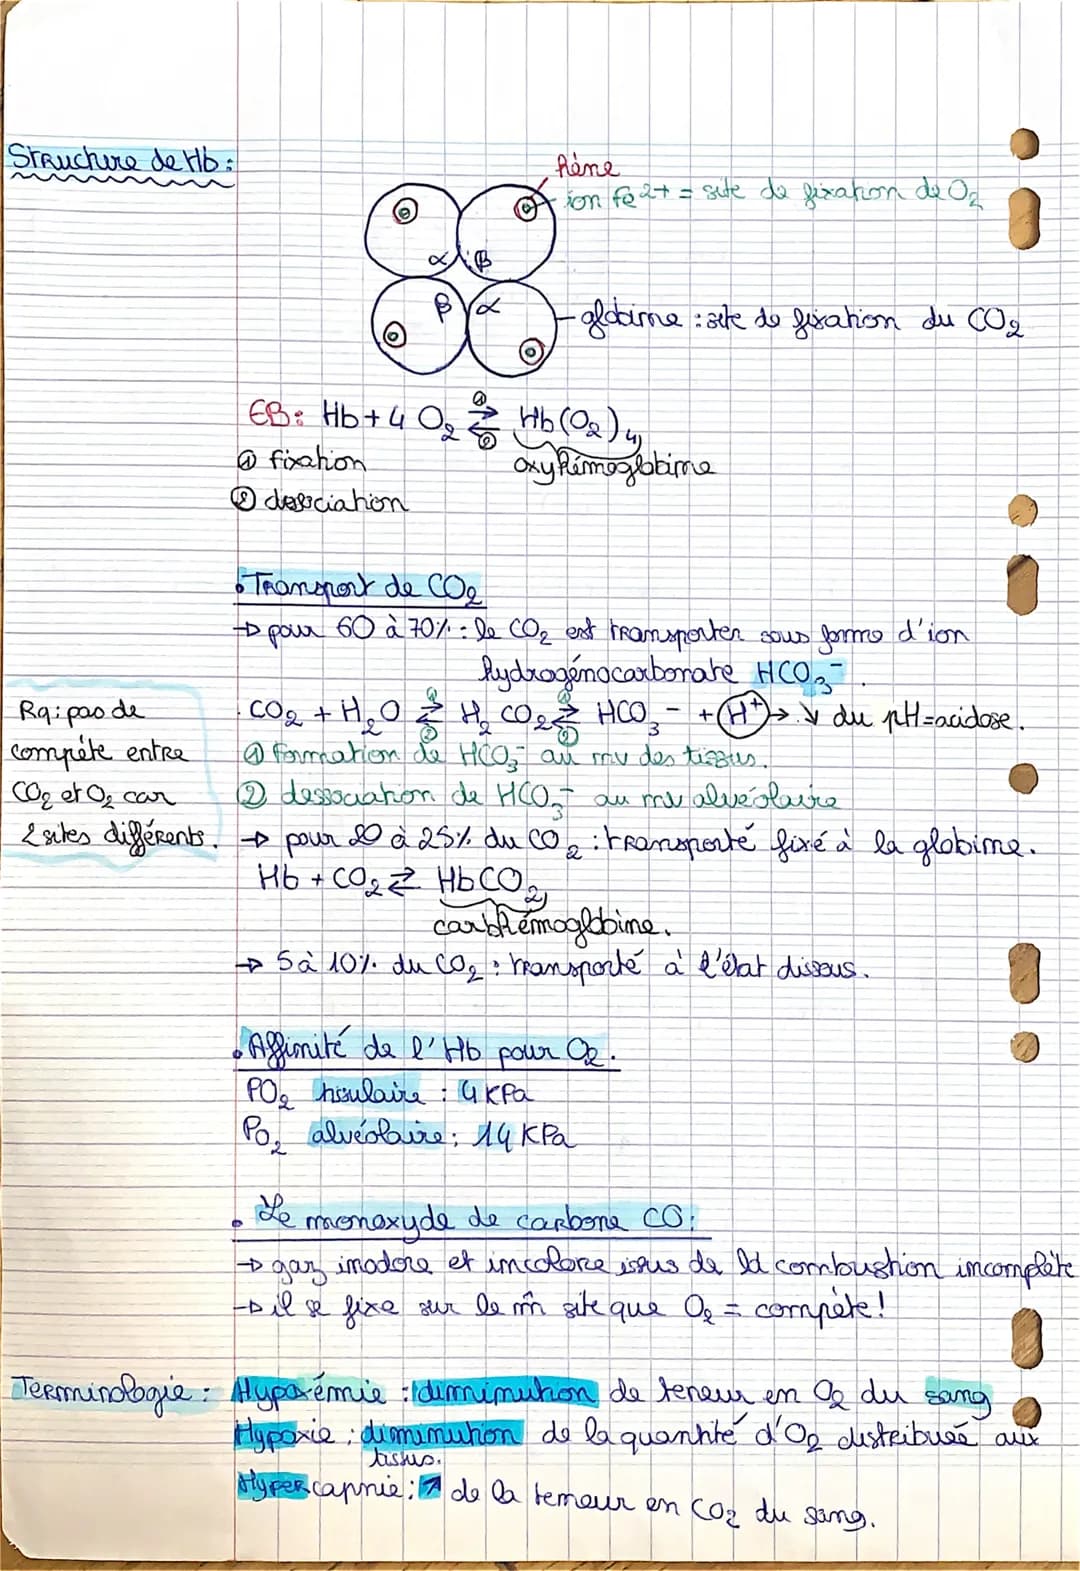 Structure de Hb :
Hème
ion Fe2+ = site de fixation de O2
α β
β α
globine : site de fixation du CO2
EB : Hb + 4 O2 ⇄ Hb(O2)4
① ②
① fixation
oxyhémoglobine
② dessociation
• Transport de CO2
→ pour 60 à 70% : le CO2 est transporter sous forme d'ion
hydrogénocarbonate HCO3-.
Rq : pas de
compéte entre
CO2 et O2 car
2 sites différents.
CO2 + H2O ⇄ H2CO2 ⇄ HCO3- + H+ → ↘ du pH = acidose.
① ② ① ②
① formation de HCO3- au nv des tissus.
② dessociation de HCO3- au nv alvéolaire
→ pour 20 à 25% du CO2 : transporté fixé à la globine.
Hb + CO2 ⇄ HbCO2
carbhémoglobine.
→ 5 à 10% du CO2 : transporté à l'état dissous.
• Affinité de l'Hb pour O2.
PO2 tissulaire : 4 KPa
PO2 alvéolaire : 14 KPa
• Le monoxyde de carbone CO :
→ gaz inodore et incolore issus de la combustion incomplète
→ il se fixe sur le m̂ site que O2 = compète !
Terminologie : Hypoxémie : diminution de teneur en O2 du sang
Hypoxie : diminution de la quantité d'O2 distribuée aux
tissus.
Hypercapnie : ↗ de la teneur en CO2 du sang.